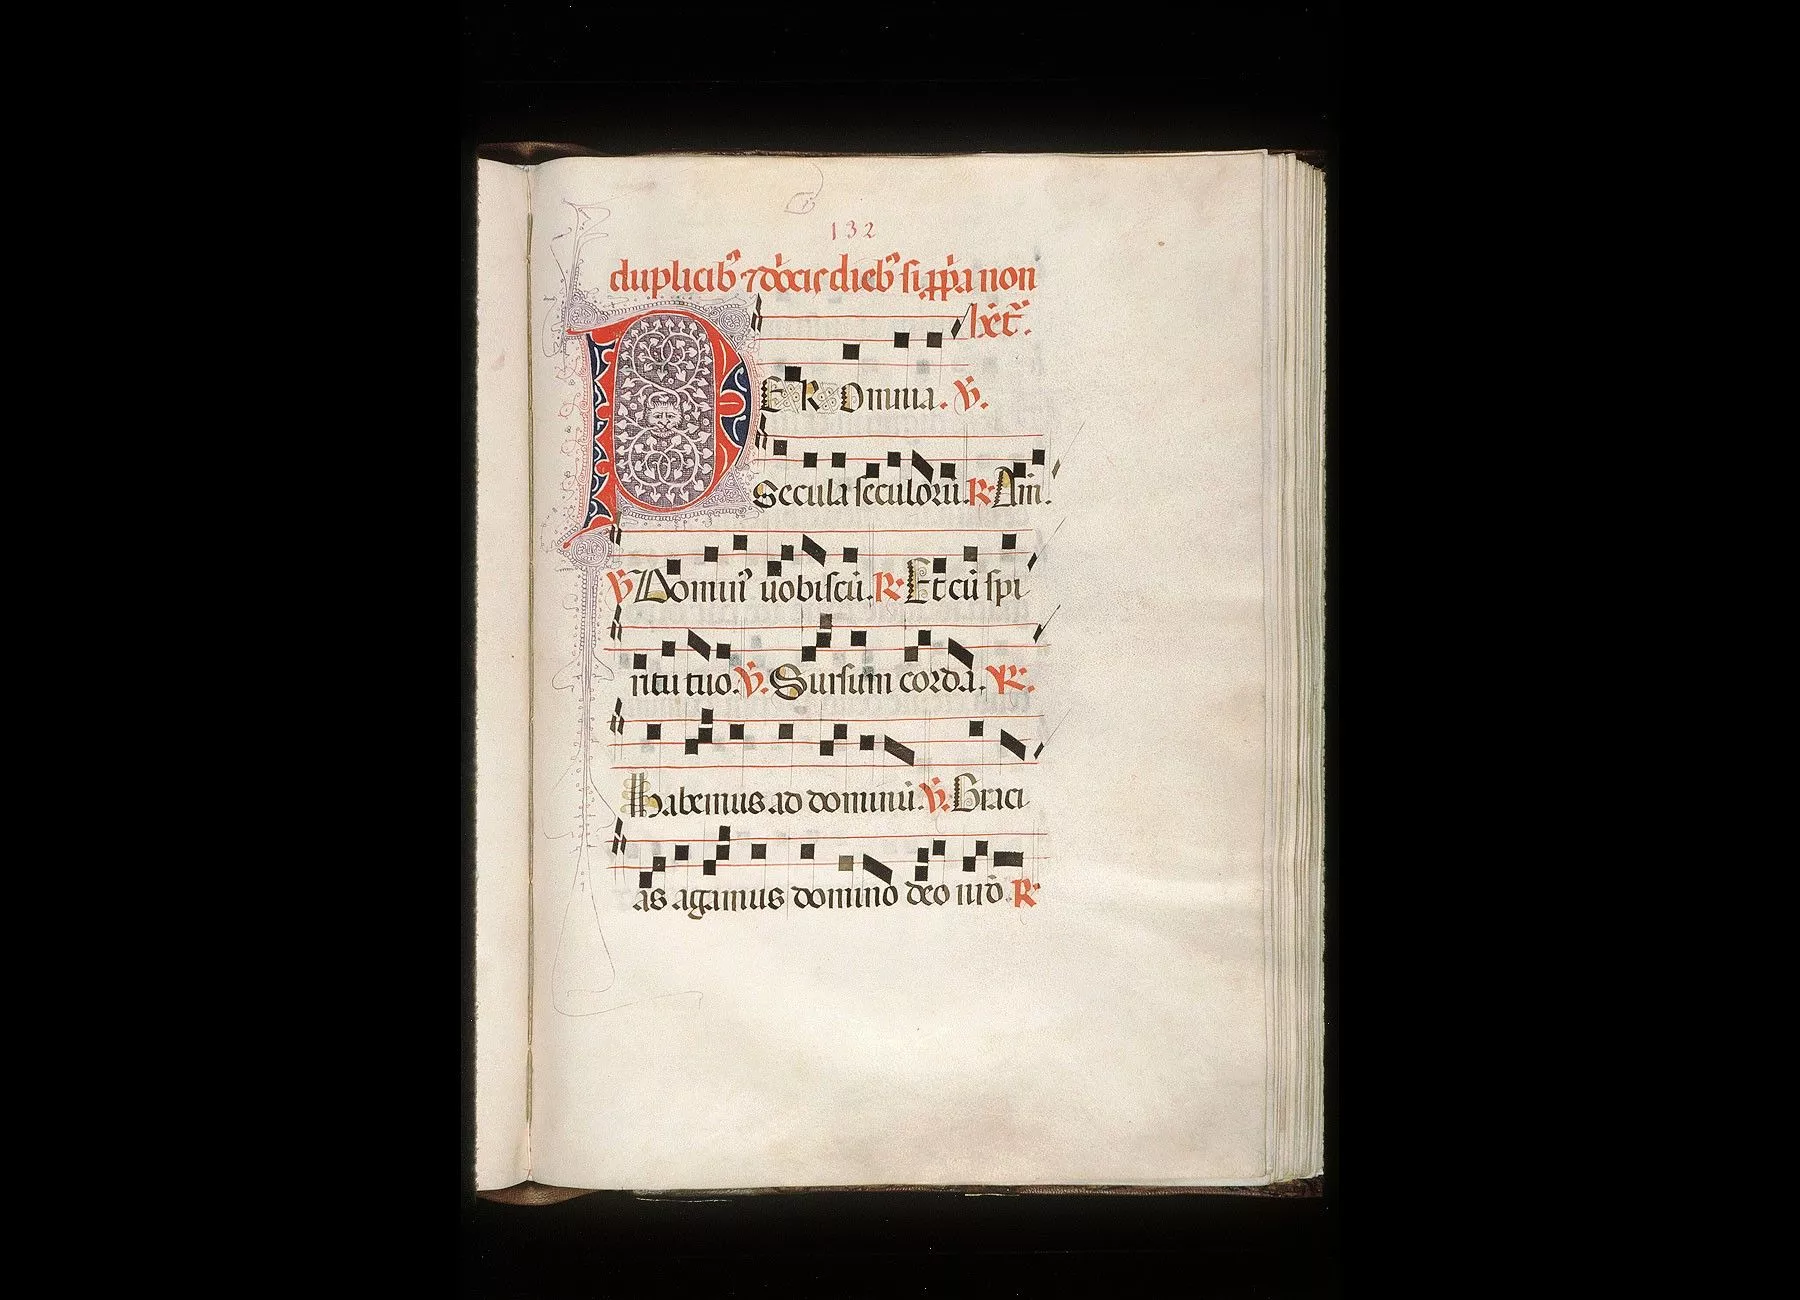 132
duplicib' ⁊ dōcis dieb' si ꝓpa non
hēt.
PER Omnia. V̄.
Secula seculorū. R. Am̄.
V̄ Domin' uobiscū. R. Et cū spi
ritu tuo. V̄. Sursum corda. R.
habemus ad dominū. V̄. Graci
as agamus domino deo nrō. R